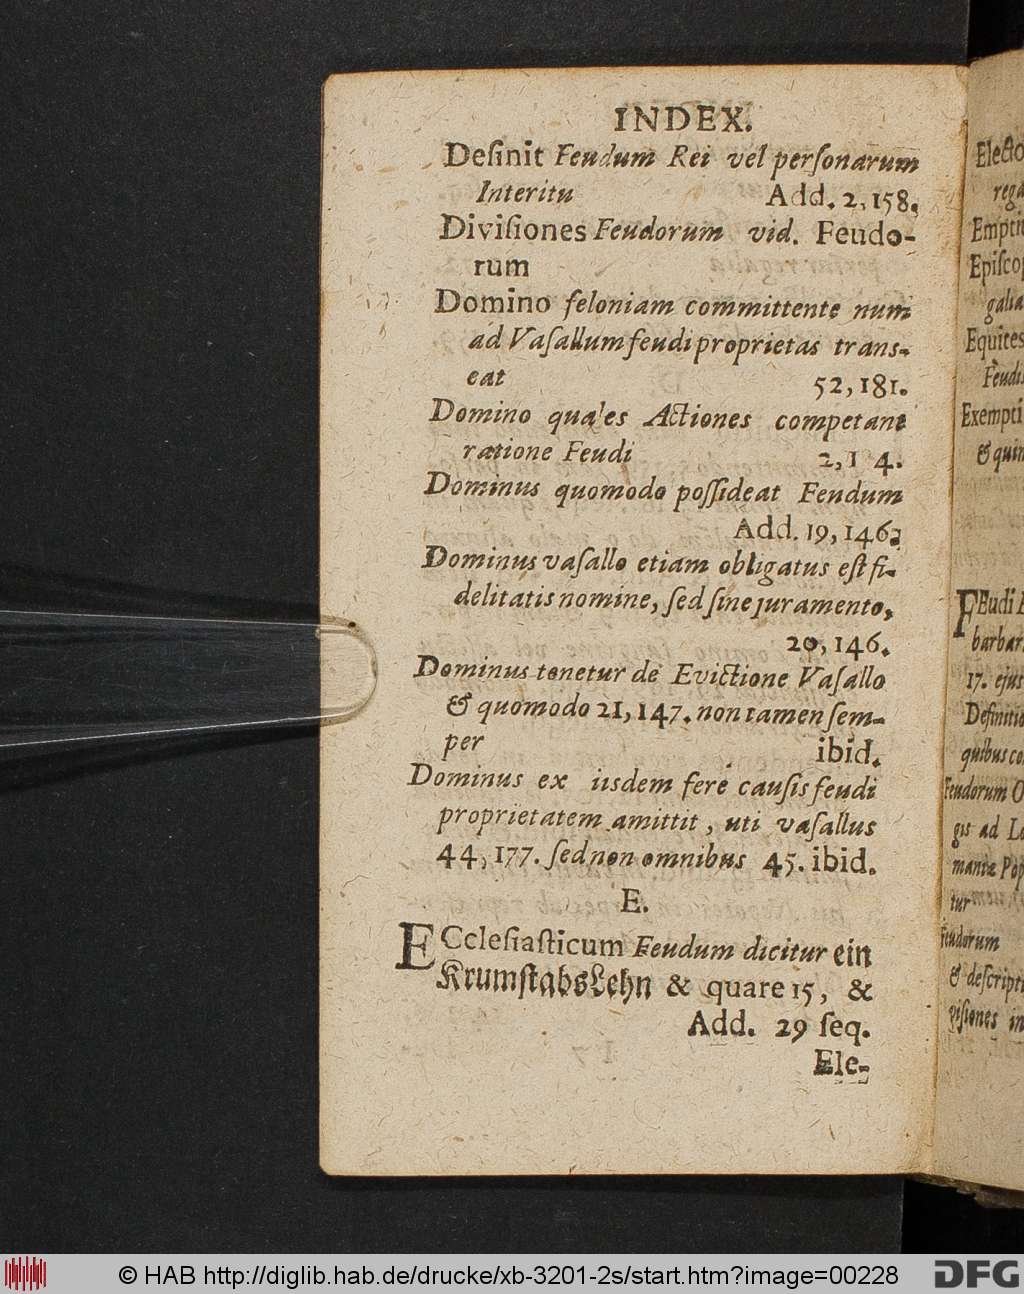 INDEX.
Desinit Feudum Rei vel personarum
Interitu Add. 2, 158.
Divisiones Feudorum vid. Feudo-
rum
Domino feloniam committente num
ad Vasallum feudi proprietas trans-
eat 52, 181.
Domino quales Actiones competant
ratione Feudi 2, 1 4.
Dominus quomodo possideat Feudum
Add. 19, 146.
Dominus vasallo etiam obligatus est fi-
delitatis nomine, sed sine juramento,
20, 146.
Dominus tenetur de Evictione Vasallo
& quomodo 21, 147. non tamen sem-
per ibid.
Dominus ex iisdem fere causis feudi
proprietatem amittit, uti vasallus
44, 177. sed non omnibus 45. ibid.
E.
ECclesiasticum Feudum dicitur ein
KrumstabsLehn & quare 15, &
Add. 29 seq.
Ele-
Electo
rega
Empti
Episco
galia
Equites
Feudis
Exempti
& quin
FEudi
barbar
17. ejus
Definitio
quibus co
Feudorum O
gis ad Lo
mantæ Pop
tur
Feudorum
& descripti
visiones in
© HAB http://diglib.hab.de/drucke/xb-3201-2s/start.htm?image=00228
DFG